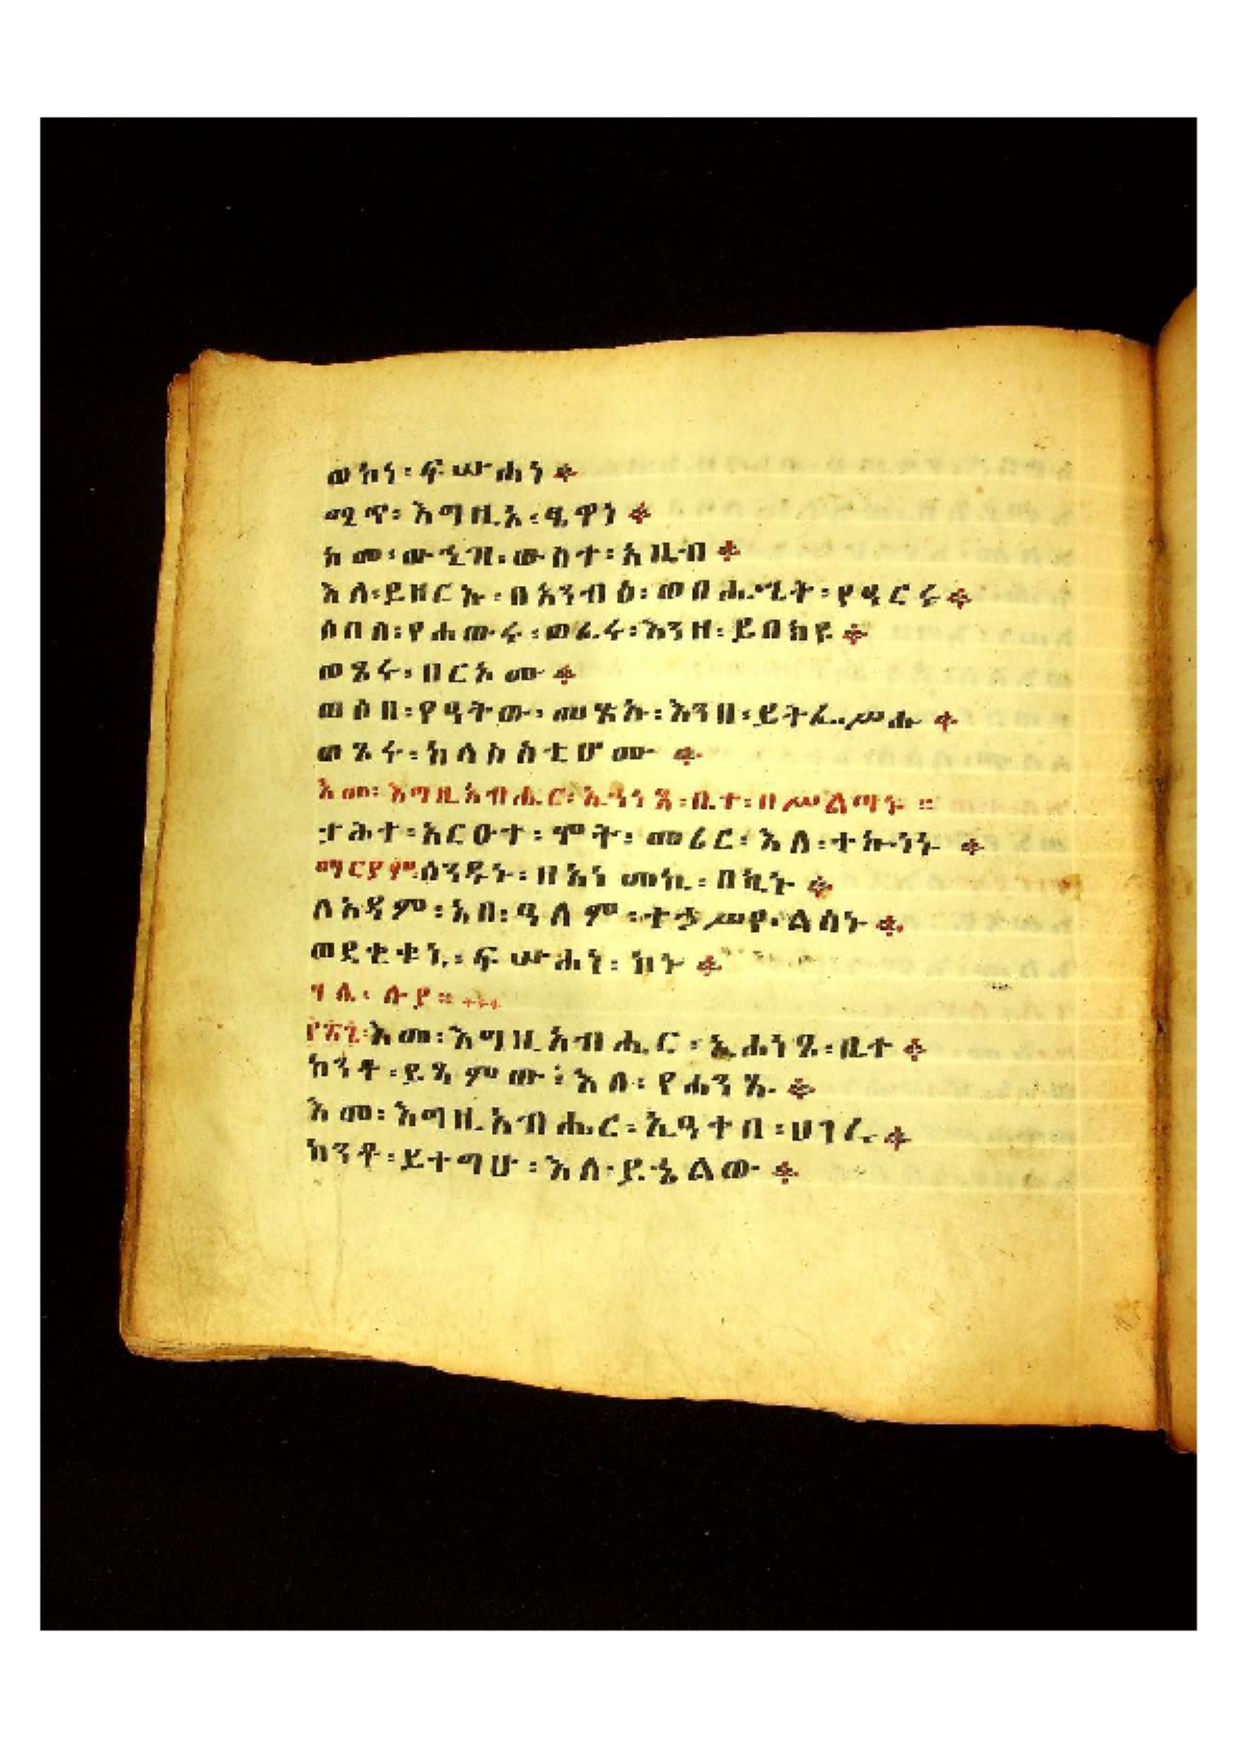 ወኮነ፡ ፍሡሐነ ።
ሚጥ፡ እግዚኦ፡ ፄዋነ ።
ከመ፡ ውኂዝ፡ ውስተ፡ አዜብ ።
እለ፡ ይዘርኡ፡ በአንብዕ፡ ወበሐሤት፡ የዓርሩ ።
ሶበሰ፡ የሐውሩ፡ ወፈሩ፡ እንዘ፡ ይበክዩ ።
ወጾሩ፡ በርኦሙ ።
ወሶበ፡ የዓትው፡ መጽኡ፡ እንዘ፡ ይትፌሥሑ ።
ወጾሩ፡ ከላስስቲሆሙ ።
እመ፡ እግዚአብሔር፡ ኢሃነፃ፡ ቤተ፡ በሥልጣኑ ።
ታሕተ፡ አርዑተ፡ ሞት፡ መሪር፡ እለ፡ ተኰነኑ ።
ማርያም፡ ሰንዱን፡
ለአዳም፡ አበ፡ ዓለም፡
ወደቂቁኒ፡ ፍሡሐነ፡ ኮኑ ።
ሃሌ፡ ሉያ ።
፻፳፮፡ እመ፡ እግዚአብሔር፡ ኢሐነፃ፡ ቤተ ።
ከንቶ፡ ይጻምው፡ እለ፡ የሐንጹ ።
እመ፡ እግዚአብሔር፡ ኢዓቀበ፡ ሀገረ ።
ከንቶ፡ ይተግሁ፡ እለ፡